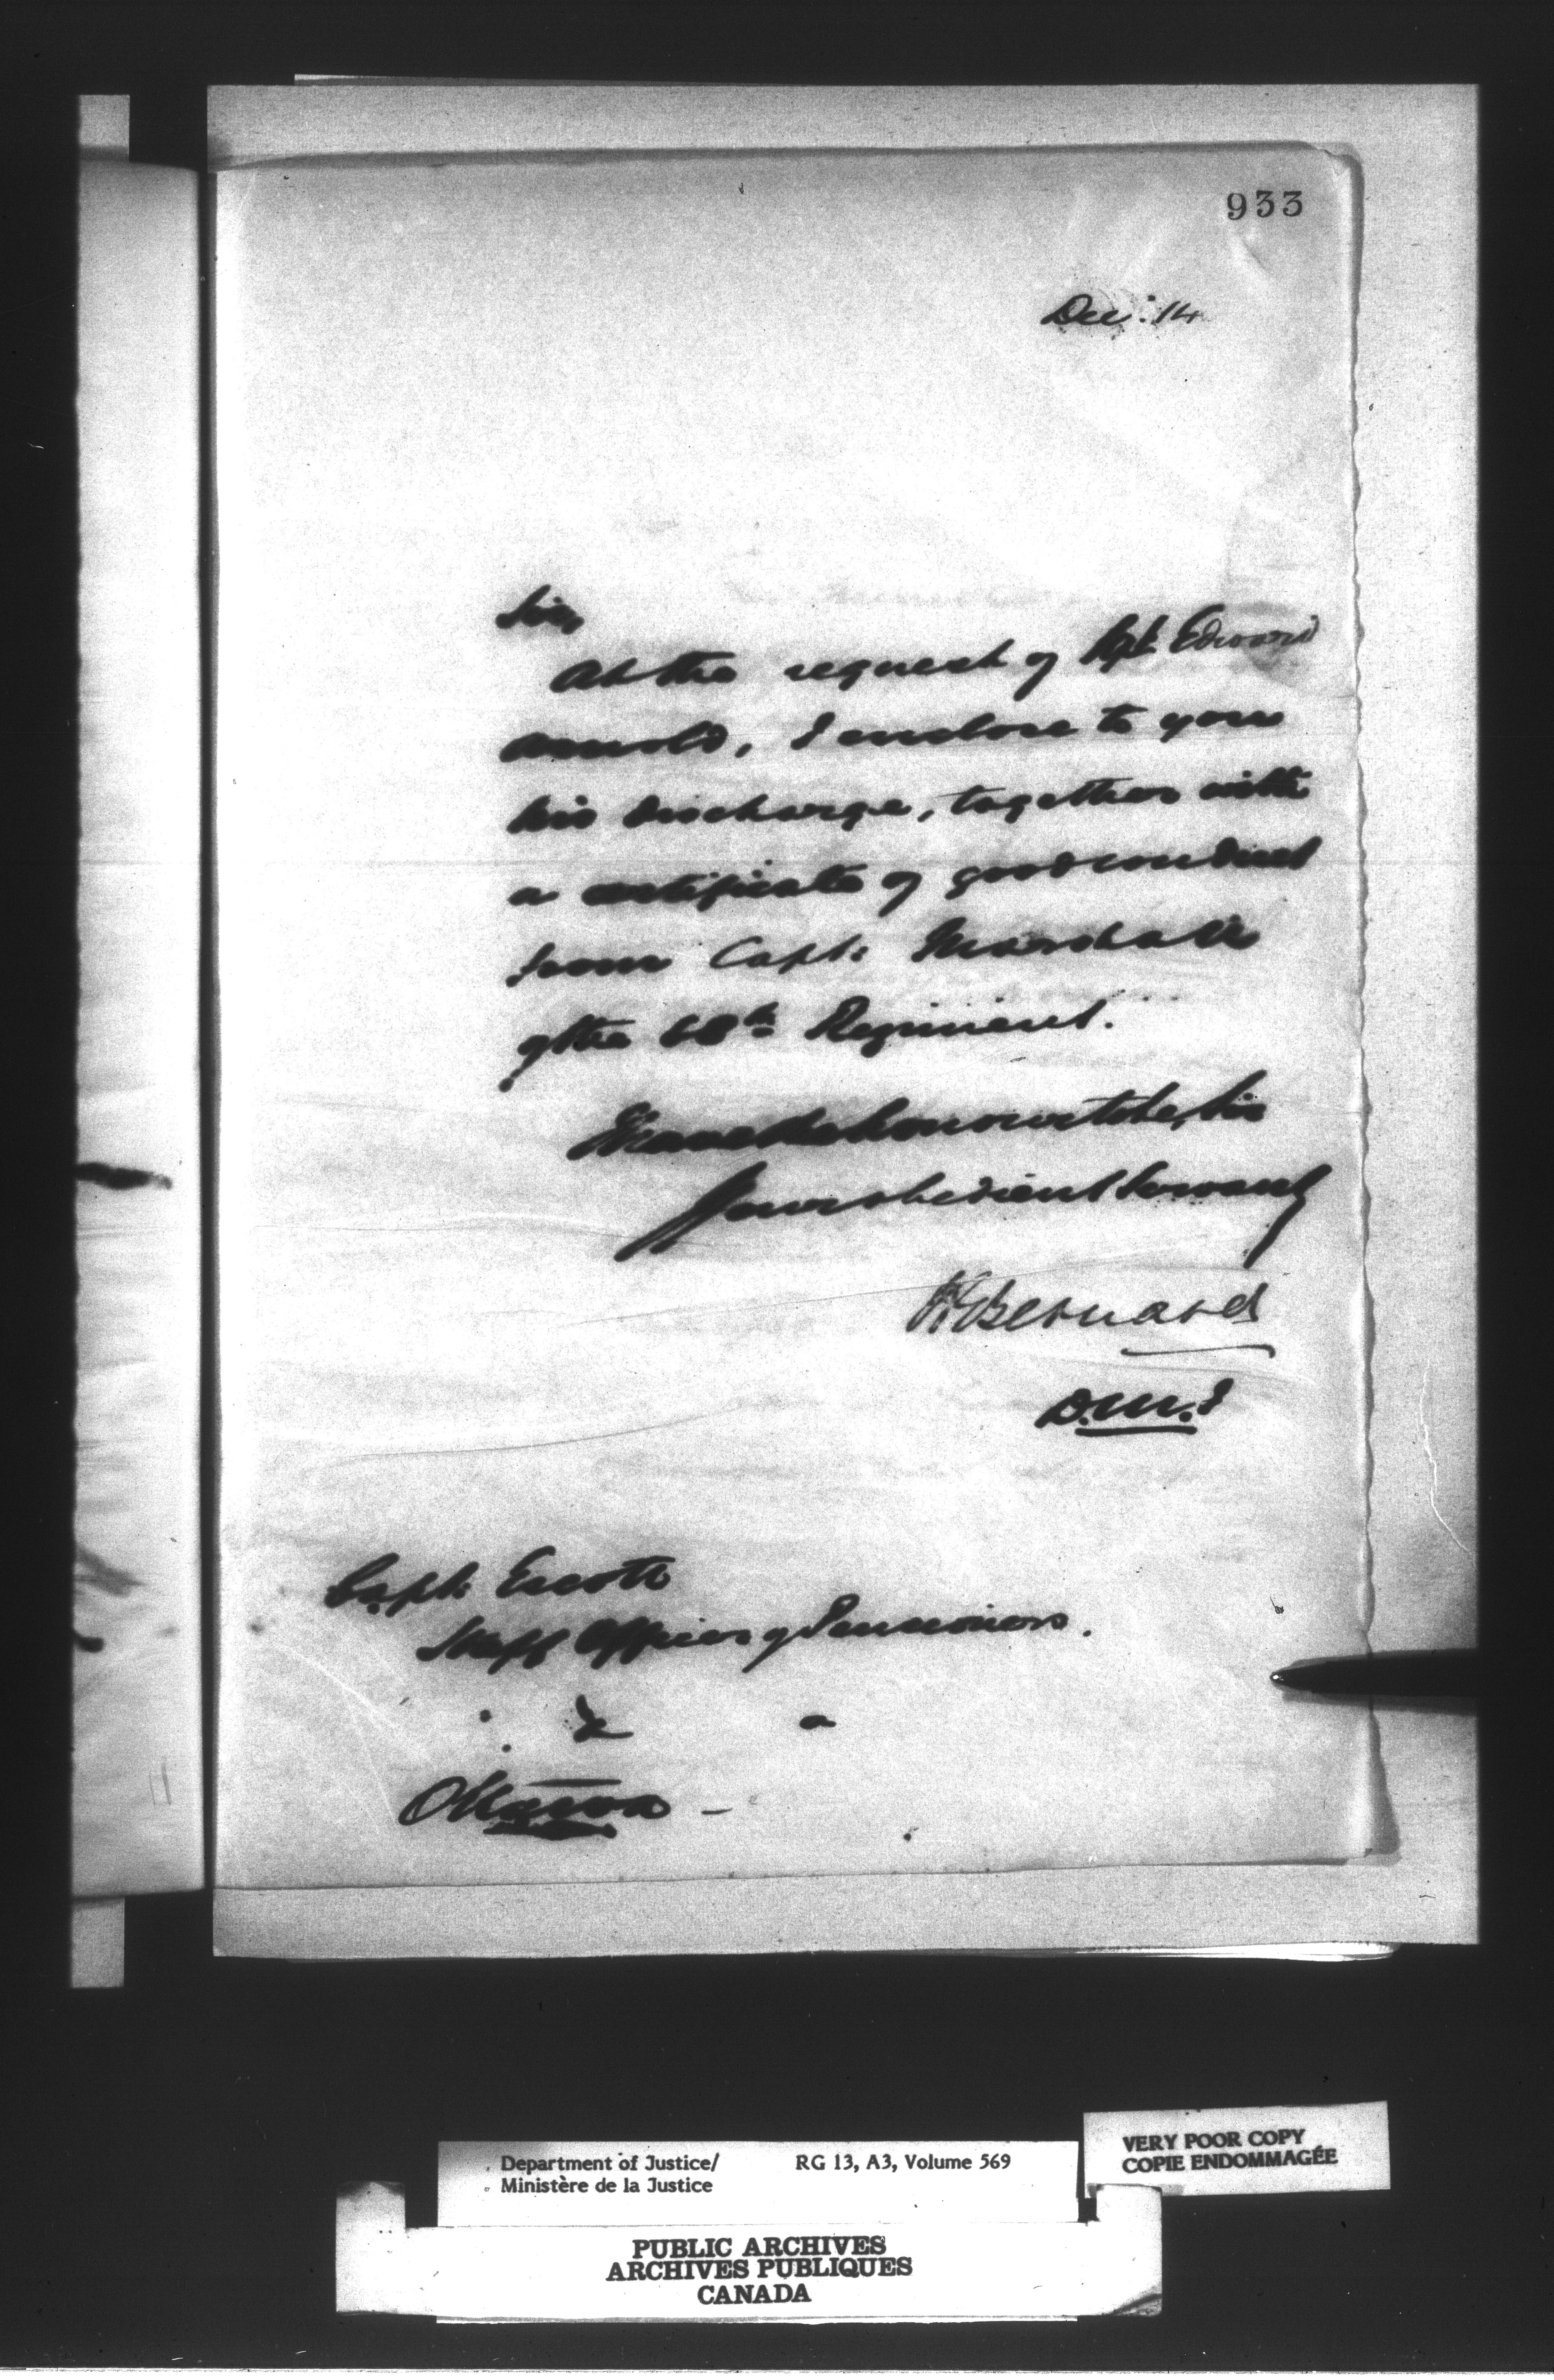 933
Dec: 14
Sir,
At the request of Sgt. Edward
Arnold, I enclose to you
his discharge, together with
a certificate of good conduct
from Capt. Marshall
of the 68th Regiment.
I have the honour to be, Sir
Your obedient Servant
H Bernard
D.M.J
Capt. Escott
Staff Officer of Pensioners.
&
Ottawa -
Department of Justice/
Ministère de la Justice
RG 13, A3, Volume 569
VERY POOR COPY
COPIE ENDOMMAGÉE
PUBLIC ARCHIVES
ARCHIVES PUBLIQUES
CANADA